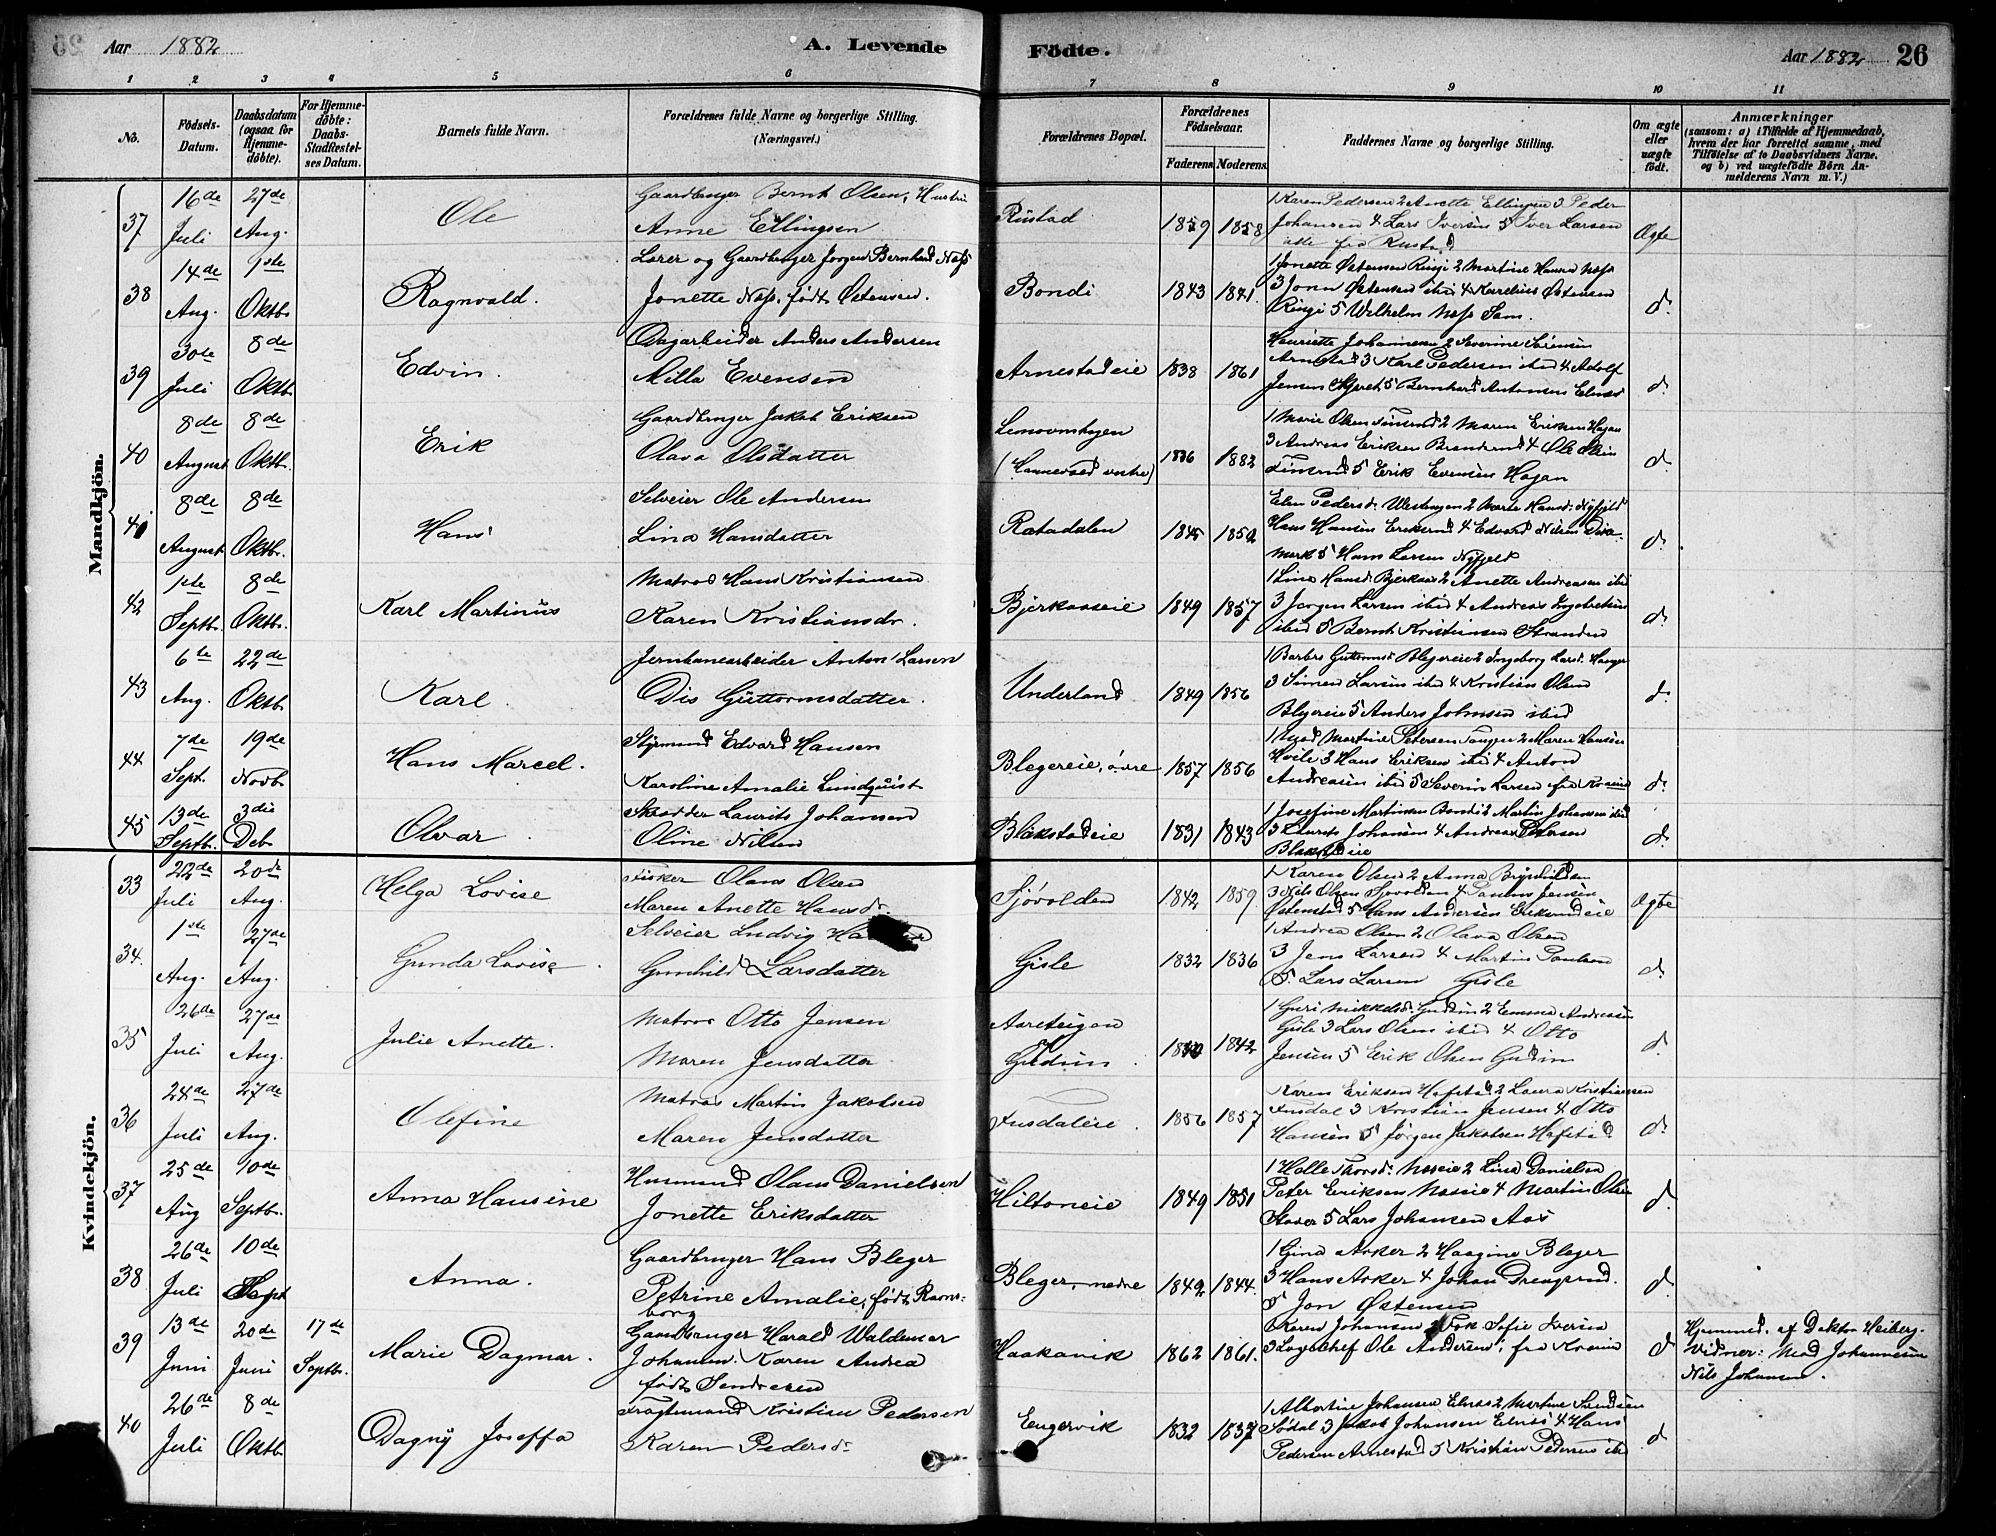 Aar 1882 A. Levende Födte. Aar 1882 26
1 2 3 4 5 6 7 8 9 10 11
No. Födsels-Datum. Daabsdatum (ogsaa for Hjemmedöbte). For Hjemmedöbte: Daabs-Stadfæstelses Datum. Barnets fulde Navn. Forældrenes fulde Navne og borgerlige Stilling. (Næringsvei.) Forældrenes Bopæl. Forældrenes Födselsaar. Faderens. Moderens. Faddernes Navne og borgerlige Stilling. Om ægte eller uægte födt. Anmærkninger (saasom: a) i Tilfælde af Hjemmedaab, hvem der har forrettet samme, med Tilföielse af to Daabsvidners Navne, og b) ved uægtefödte Börn Anmelderens Navn m. V.)
Mandkjön.
37 16de Juli 27de Aug. Ole Gaardbruger Bernh. Olsen, Hustru Anne Ellingsen Rustad 1859 1858 1 Karen Pedersen 2 Anette Ellingsen 3 Peder Johansen 4 Lars Iversen 5 Iver Larsen alle fra Rustad Ægte
38 14de Aug. 1ste Oktb. Ragnvald. Lærer og Gaardbruger Jørgen Bernhard Næss Jonette Næss, født Østensen. Bondi 1843 1841. 1 Jonette Østensen Ringi 2 Martine Hanna Næss 3 Jonn Østensen ibid 4 Karelius Østensen Ringi 5 Wilhelm Næss Sem. d.
39 30te Juli 8de Oktb. Edvin. Dagarbeider Anders Andersen Milla Evensen Arnestadeie 1838 1861 Henriette Johannesen 2 Severine Sørensen Arnestad 3 Karl Pedersen ibid 4 Adolf Jensen 5 Bernhard Antonsen Elnæs d.
40 8de August 8de Oktb. Erik Gaardbruger Jakob Eriksen Olava Olsdatter 1836 1882 1 Marie Olsen 2 Maren Eriksen Hagan 3 Andreas Eriksen 4 Ole Olsen 5 Erik Evensen Hagan d.
41 8de August 8de Oktb. Hans Selveier Ole Andersen Lina Hansdatter Ratadalen 1845 1852 Elen Pedersd. 2 Marte Hansd. Nyfjeld Hans Hansen 4 Edvard Nilsen 5 Hans Larsen Nyfjeld d.
42 1ste Septbr. 8de Oktbr. Karl Martinus Matros Hans Kristiansen Karen Kristiansdr. Bjerkaaseie 1849 1857 1 Lina Hansd. Bjerkaas 2 Anette Andreasen ibid 3 Jørgen Larsen ibid 4 Andreas Ingebretsen ibid 5 Bernt Kristiansen Stranden d.
43 6te Aug. 22de Oktb. Karl. Jernbanearbeider Anton Larsen Dis Guttormsdatter. Underland 1849 1856 1 Barbro Guttormsd. Blegereie 2 Ingeborg Larsd. 3 Simen Larsen ibid 4 Kristian Olsen Blegereie 5 Anders Johnsen ibid d.
44 7de Sept. 19de Novb. Hans Marcel. Styrmand Edvard Hansen Karoline Amalie Lundquist Blegereie, øvre 1857 1856 Martine Petersen Tangen 2 Maren Hansen Hvile 3 Hans Eriksen ibid 4 Anton Andreasen ibid 5 Severin Larsen fra d.
45 13de Septbr. 3die Deb. Olvar. Skrædder Laurits Johansen Oline Nilsen Blakstadeie 1831 1843 1 Josefine Martinsen Bondi 2 Martin Johansen ibid 3 Laurits Johansen 4 Andreas Petersen Blakstadeie d.
Kvindekjön.
33 22de Juli 20de Aug. Helga Lovise Fisker Olaus Olsen Maren Anette Hansdr. Sjøvolden 1842 1859 1 Karen Olsen 2 Anna 3 Nils Olsen Sjøvolden 4 Jensen Østenstad 5 Hans Andersen Ægte
34. 1ste Aug. 27de Aug. Gunda Lovise. Selveier Ludvig Gunhild Larsdatter Gisle 1832 1836 1 Andrea Olsen 2 Olava Olsen 3 Jens Larsen 4 Martin Paulsen 5. Lars Larsen Gisle d.
35 26de Juli 27de Aug. Julie Anette. Matros Otto Jensen Maren Jensdatter. Gudim. 1842 1 Guri Mikkelsd. Gudim 2 Emma Andreasen Gisle 3 Lars Olsen ibid 4 Otto Jensen 5 Erik Olsen Gudim d.
36 24de Juli 27de Aug. Olefine Matros Martin Jakobsen Maren Jensdatter Fusdaleie. 1856 1857 Karen Eriksen Hafstad 2 Laura Kristiansen Fusdal 3 Kristian Jensen 4 Otto Hansen 5 Jørgen Jakobsen Hafstad d.
37 25de Aug 10de Septbr. Anna Hansine Husmand Olaus Danielsen Jonette Eriksdatter Hiltoneie 1849 1851 1 Halle Thorsd. Næseie 2 Lina Danielsen Peter Eriksen Næseie 4 Martin Olsen Staver 5 Lars Johansen Aas d.
38 26de Juli 10de Sept Anna. Gaardbruger Hans Bleger Petrine Amalie, født Ramsborg Bleger, nedre 1842 1844. 1 Gina Asker 2 Haagine Bleger 3 Hans Asker 4 Johan Drengsrud. 5 Jon Østensen d.
39 13de Juni 20de Juni 17de Septbr. Marie Dagmar. Gaardbruger Harald Waldemar Johansen. Karen Andrea født Haakavik 1862 1861. Karen Johansen 2 Frøk Sofie Iversen 3 Logstchef Ole Andersen, fra d Hjemmed. af Doktor Heiberg. Vidner: Mad Johannesen Nils Johansen.
40 26de Juli 8de Oktb. Dagny Joseffa Fragtemand Kristian Pedersen Karen Pedersd. Engervik 1832 1837 1 Albertine Johansen Elnæs 2 Martine Svendsen Sødal 3 Jakob Johansen Elnæs 4 Hans Pedersen Arnestad 5 Kristian Pedersen ibid d.